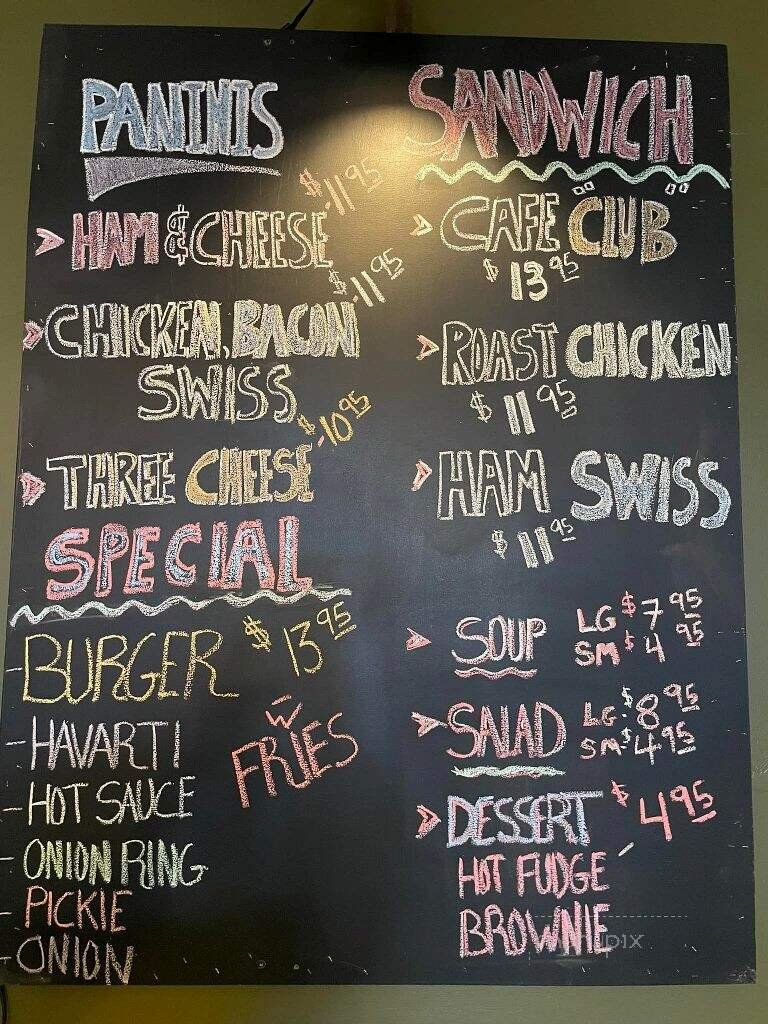 PANINIS
HAM & CHEESE $11.95
CHICKEN, BACON $11.95
SWISS
THREE CHEESE $10.95
SPECIAL
- BURGER $13.95
- HAVARTI
- HOT SAUCE
- ONION RING
- PICKIE
- ONION
W/
FRIES
SANDWICH
CAFE CLUB
$13.95
ROAST CHICKEN
$11.95
HAM SWISS
$11.95
SOUP LG $7.95
SM $4.95
SALAD LG $8.95
SM $4.95
DESSERT $4.95
HOT FUDGE
BROWNIE